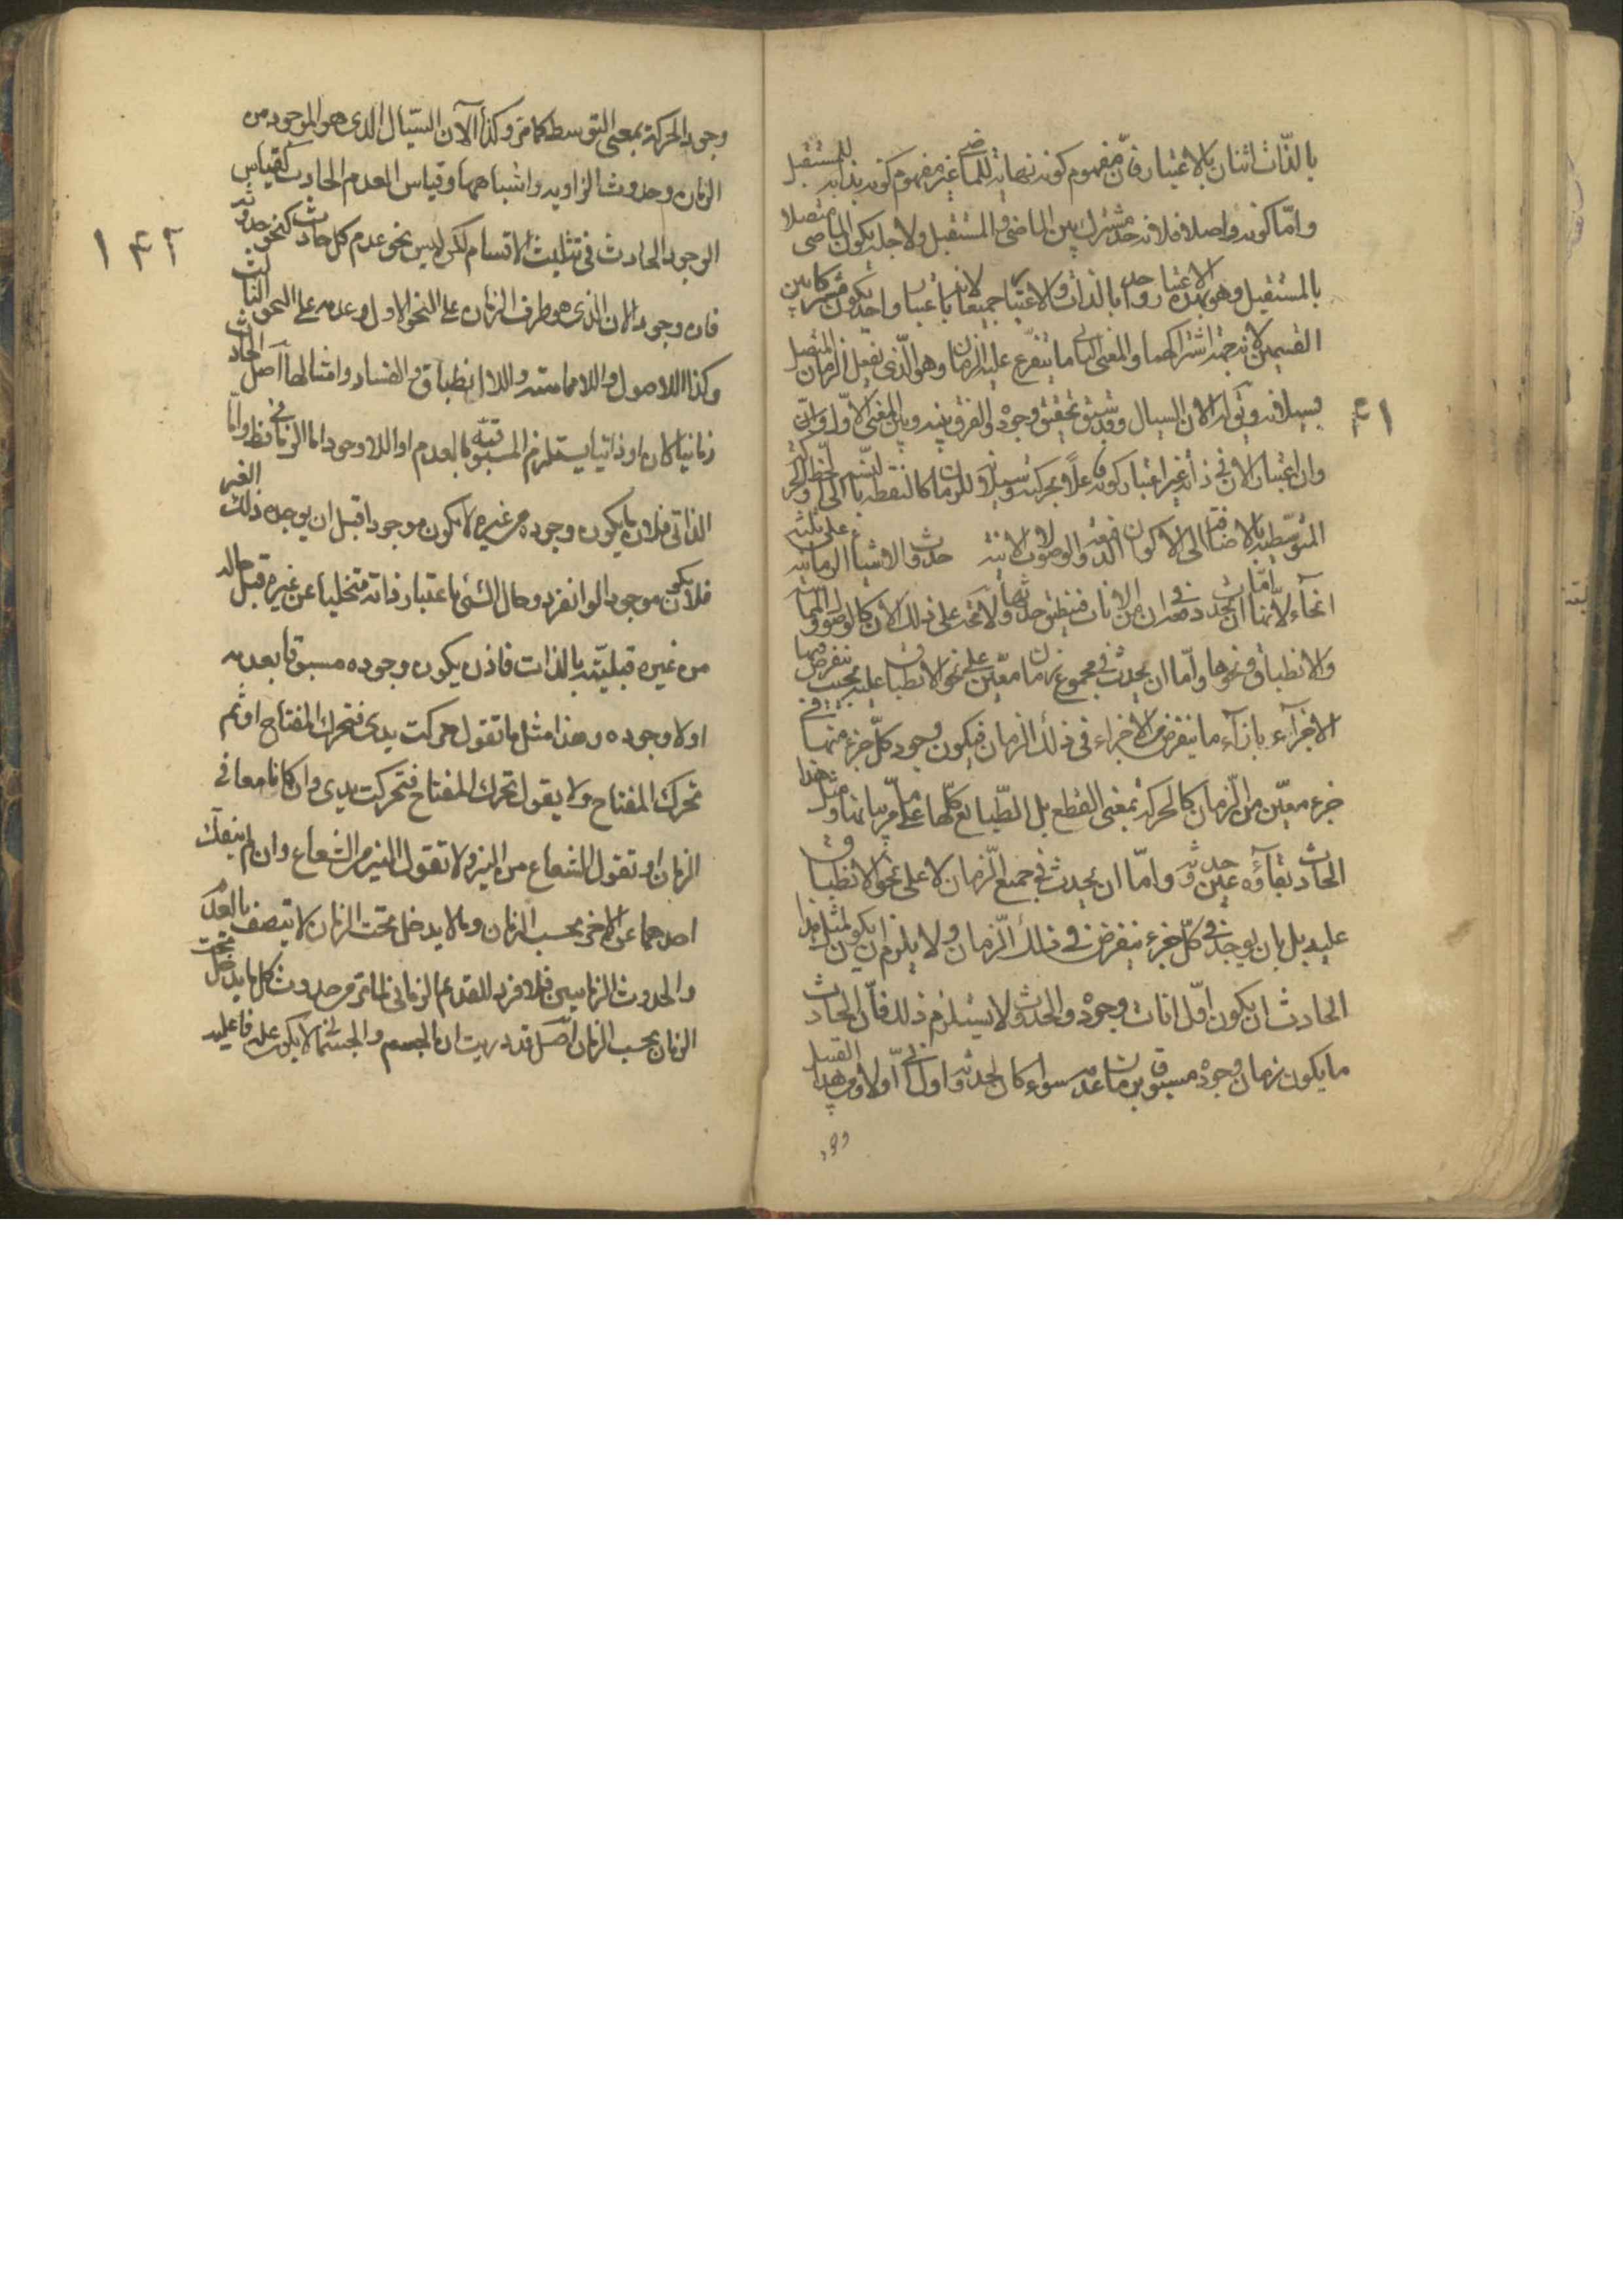 بالذات اثنان بالاعتبار فان مفهوم كونه نهاية للماضى غير مفهوم كونه بداية للمستقبل
واما كونه واصلا فلانه حد مشترك بين الماضى والمستقبل ولاجله يكون الماضى متصلا
بالمستقبل وهو بهذه الاعتبار واحد بالذات والاعتبار جميعا لانه باعتبار واحد يكون مشتركا بين
القسمين لانه جهة اشتراكهما والمعنى الثانى ما يتفرع عليه الزمان وهو الذى يفعل الزمان المتصل
بسيلانه ويقال له الان السيال وقد سبق تحقيق وجوده والفرق بينه وبين المعنى الاول وان
١٤١
وان اعتبار الان فى ذاته غير اعتبار كونه فاعلا بحركته وسيلانه للزمان كالنقطة بالنسبة الى الخط والحركة
المتوسطية بالاضافة الى الاكوان الدفعية والوصولات الانية حدوث الاشياء الزمانية على ثلثة
انحاء لانها اما ان تحدث دفعة فى ان من الانات فينطبق حدوثها ولا محة على ذلك الان كالوصول والمماسة
والانطباق ونحوها واما ان يحدث فى مجموع زمان ما معين على نحو الانطباق عليه بحيث ينفرض فيها
الاجزاء بازاء ما ينفرض من الاجزاء فى ذلك الزمان فيكون وجود كل جزء منها فى
جزء معين من الزمان كالحركة بمعنى القطع بل الطبايع كلها على ما مر بيانها ومثل هذا
الحادث بقاؤه عين حدوثه واما ان يحدث فى جميع الزمان لا على نحو الانطباق
عليه بل بان يوجد فى كل جزء ينفرض فى ذلك الزمان ولا يلزم ان يكون لمثل هذا
الحادث ان يكون اول انات وجوده والحدوث لا يستلزم ذلك فان الحادث
ما يكون زمان وجوده مسبوق بزمان عدمه سواء كان لحدوثه اول انى اولا ومن هذا القبيل
وجود
وجود الحركة بمعنى التوسط كما مر وكذا الآن السيال الذى هو الموجود من
الزمان وحدوث الزاوية واشباهها وقياس العدم الحادث كقياس
١٤٢
الوجود الحادث فى تثليث الاقسام لكن ليس نحو عدم كل حادث كنحو حدوثه
فان وجود الان الذى هو طرف الزمان على النحو الاول وعدمه على النحو الثالث
وكذا اللاوصول واللامماسة واللاانطباق والفساد وامثالها اصل الحادث
زمانيا كان او ذاتيا يستلزم المسبوقية بالعدم او اللاوجود اما الزمانى فظ واما
الذاتى فلان ما يكون وجوده من غيره لا يكون موجودا قبل ان يوجده ذلك الغير
فلا يكون موجودا لو انفرد وحال الشئ باعتبار ذاته متخليا عن غيره قبل حاله
من غيره قبلية بالذات فاذن يكون وجوده مسبوقا بعدمه
او لا وجوده وهذا مثل ما تقول حركت يدى فتحرك المفتاح او ثم
تحرك المفتاح ولا يقول تحرك المفتاح فتحركت يدى وان كانا معا فى
الزمان او تقول الشعاع من المنير ولا تقول المنير من الشعاع وان لم ينفك
احدهما عن الاخر بحسب الزمان وما لا يدخل تحت الزمان لا يتصف بالقدم
والحدوث الزمانيين فلا فرد للقديم الزمانى لما مر من حدوث كل ما يدخل تحت
الزمان بحسب الزمان اصل قد دريت ان الجسم والجسمانى لا يكون علة فاعلية